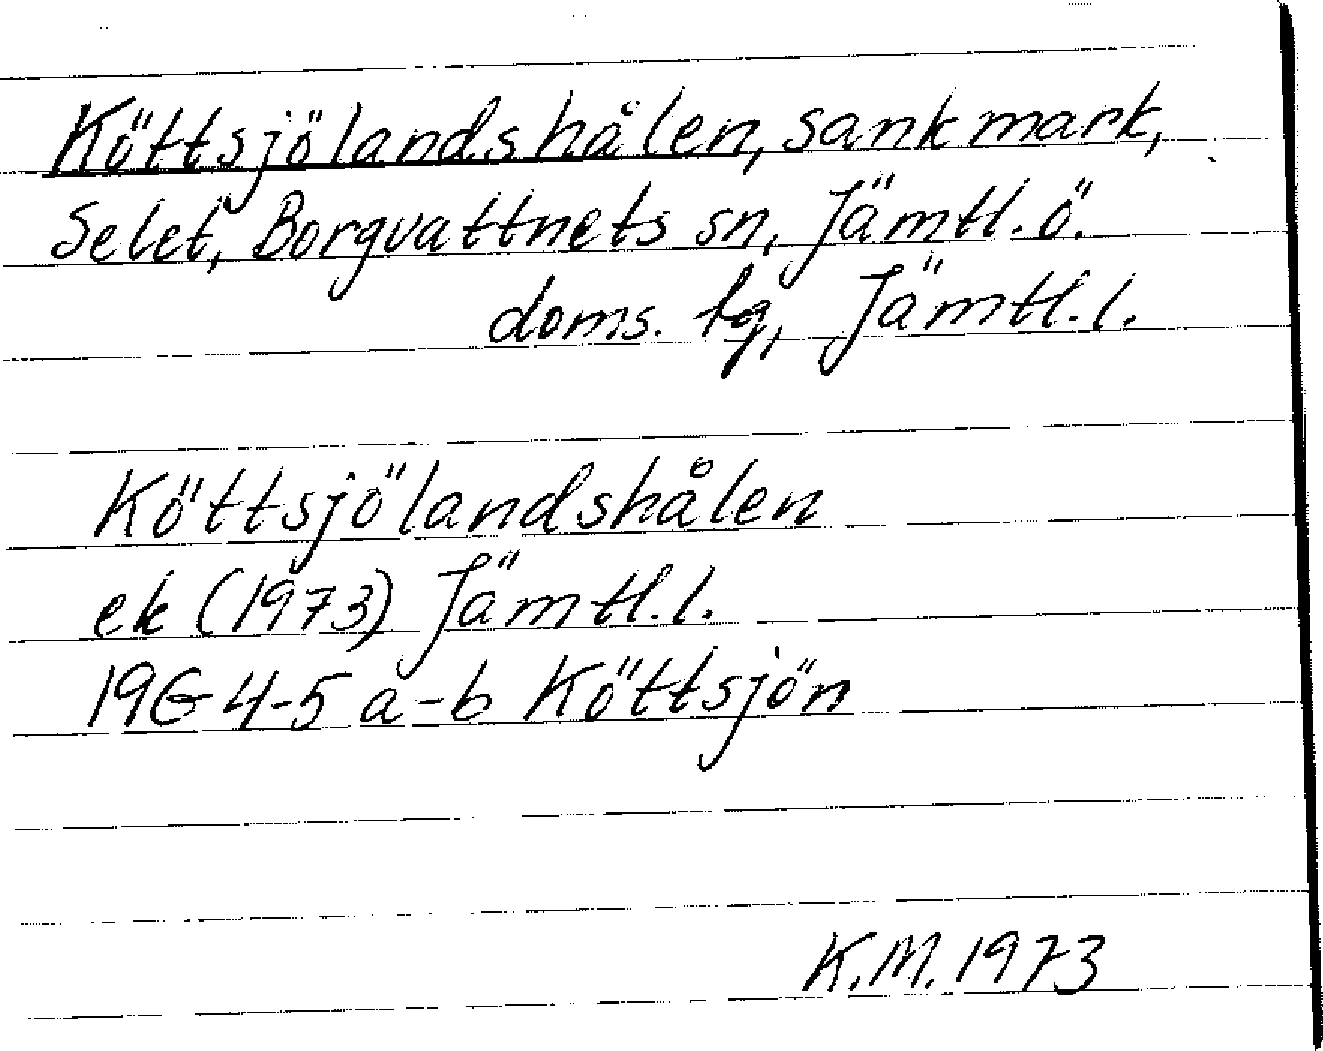 Köttsjölandshålen, sank mark,
Selet, Borgvattnets sn, Jämtl. ö.
doms. tg, Jämtl. l.
Köttsjölandshålen
ek (1973) Jämtl. l.
19G 4-5 a-b Köttsjön
K.M. 1973